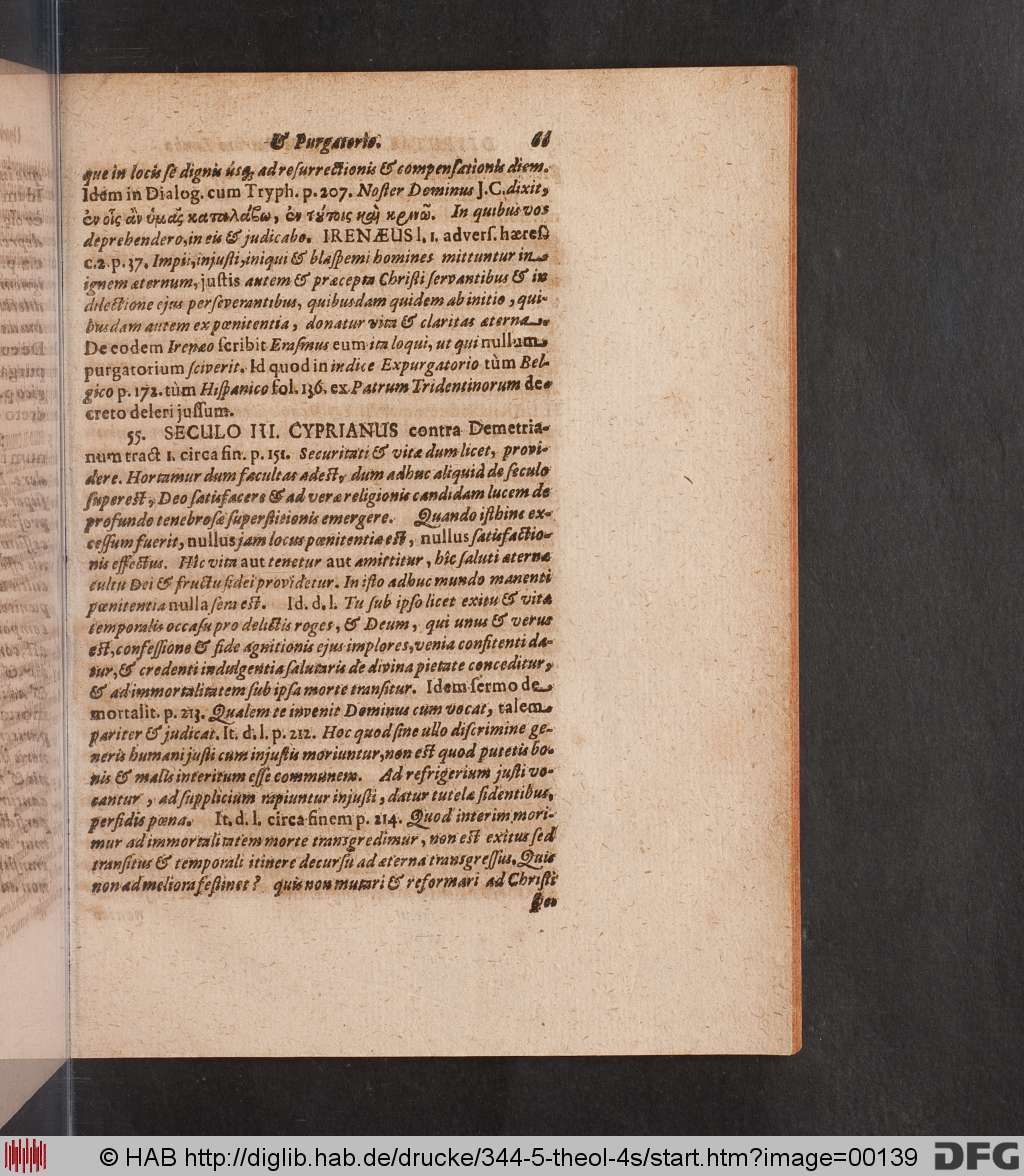 & Purgatorio. 61
que in locis se dignis úsq; ad resurrectionis & compensationis diem.
Idem in Dialog. cum Tryph. p. 207. Noster Dominus J.C. dixit,
ἐν οἷς ἂν ὑμᾶς καταλάβω, ἐν τούτοις καὶ κρινῶ. In quibus vos
deprehendero, in eis & judicabo. IRENÆUS l. 1. advers. hæres
c. 2. p. 37. Impii, injusti, iniqui & blasphemi homines mittuntur in
ignem æternum, justis autem & præcepta Christi servantibus & in
dilectione ejus perseverantibus, quibusdam quidem ab initio, qui-
busdam autem ex pœnitentia, donatur vita & claritas æterna.
De eodem Irenæo scribit Erasmus eum ita loqui, ut qui nullum
purgatorium sciverit. Id quod in indice Expurgatorio tùm Bel-
gico p. 172. tùm Hispanico fol. 136. ex Patrum Tridentinorum de-
creto deleri jussum.
55. SECULO III. CYPRIANUS contra Demetria-
num tract 1. circa fin. p. 151. Securitati & vitæ dum licet, provi-
dere. Hortamur dum facultas adest, dum adhuc aliquid de seculo
superest, Deo satisfacere & ad veræ religionis candidam lucem de
profundo tenebrosæ superstitionis emergere. Quando isthinc ex-
cessum fuerit, nullus jam locus pœnitentiæ est, nullus satisfactio-
nis effectus. Hîc vita aut tenetur aut amittitur, hîc saluti æternæ
cultu Dei & fructu fidei providetur. In isto adhuc mundo manenti
pœnitentia nulla sera est. Id. d. l. Tu sub ipso licet exitu & vitæ
temporalis occasu pro delictis roges, & Deum, qui unus & verus
est, confessione & fide agnitionis ejus implores, venia confitenti da-
tur, & credenti indulgentia salutaris de divina pietate conceditur,
& ad immortalitatem sub ipsa morte transitur. Idem sermo de
mortalit. p. 213. Qualem te invenit Dominus cum vocat, talem
pariter & judicat. It. d. l. p. 212. Hoc quod sine ullo discrimine ge-
neris humani justi cum injustis moriuntur, non est quod putetis bo-
nis & malis interitum esse communem. Ad refrigerium justi vo-
cantur, ad supplicium rapiuntur injusti, datur tutela fidentibus,
perfidis pœna. It. d. l. circa finem p. 214. Quod interim mori-
mur ad immortalitatem morte transgredimur, non est exitus sed
transitus & temporali itinere decursu ad æterna transgressus. Quis
non ad meliora festinet? quis non mutari & reformari ad Christi
© HAB http://diglib.hab.de/drucke/344-5-theol-4s/start.htm?image=00139
DFG